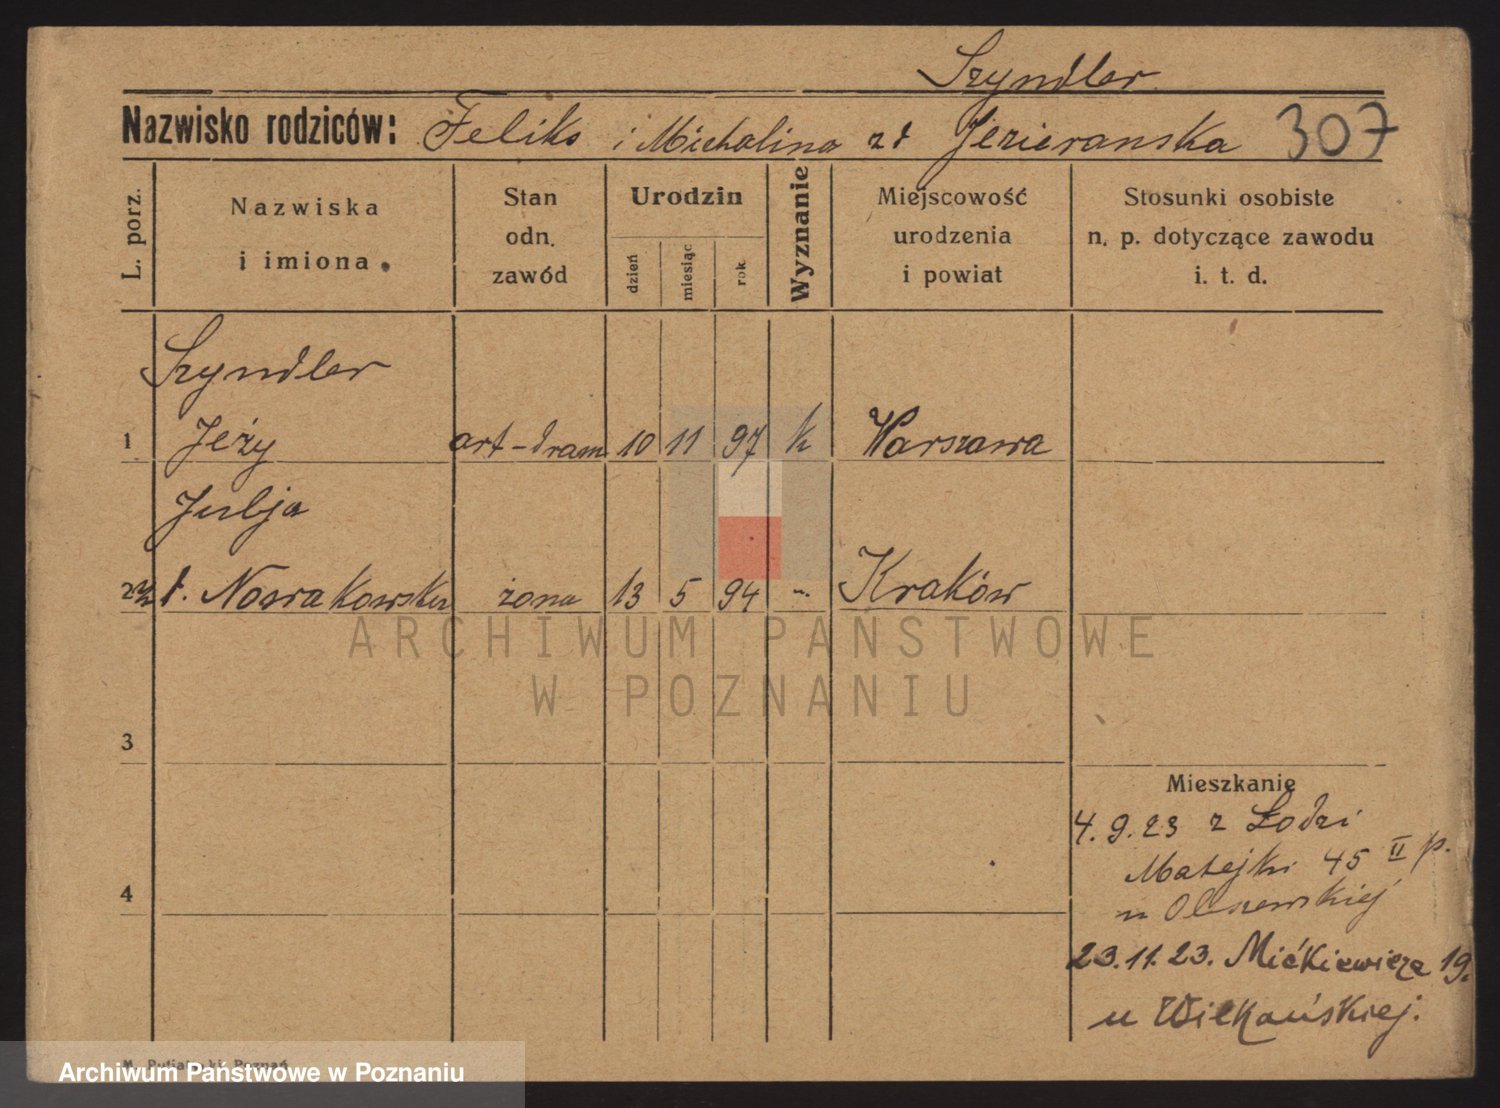 Szyndler
Nazwisko rodziców: Feliks i Michalina zd Jezieranska 307
L. porz.
Nazwiska
i imiona
Stan
odn.
zawód
Urodzin
dzień
miesiąc
rok
Wyznanie
Miejscowość
urodzenia
i powiat
Stosunki osobiste
n. p. dotyczące zawodu
i. t. d.
Szyndler
1 Jeży art-dram 10 11 97 k Warszawa
Julja
2 Nowakowska żona 13 5 94 Kraków
ARCHIWUM PAŃSTWOWE
W POZNANIU
3
Mieszkanie
4.9.23 z Łodzi
Matejki 45 II p.
4
u Olszewskiej
23.11.23. Mićkiewicza 19.
u Wilkańskiej.
Archiwum Państwowe w Poznaniu